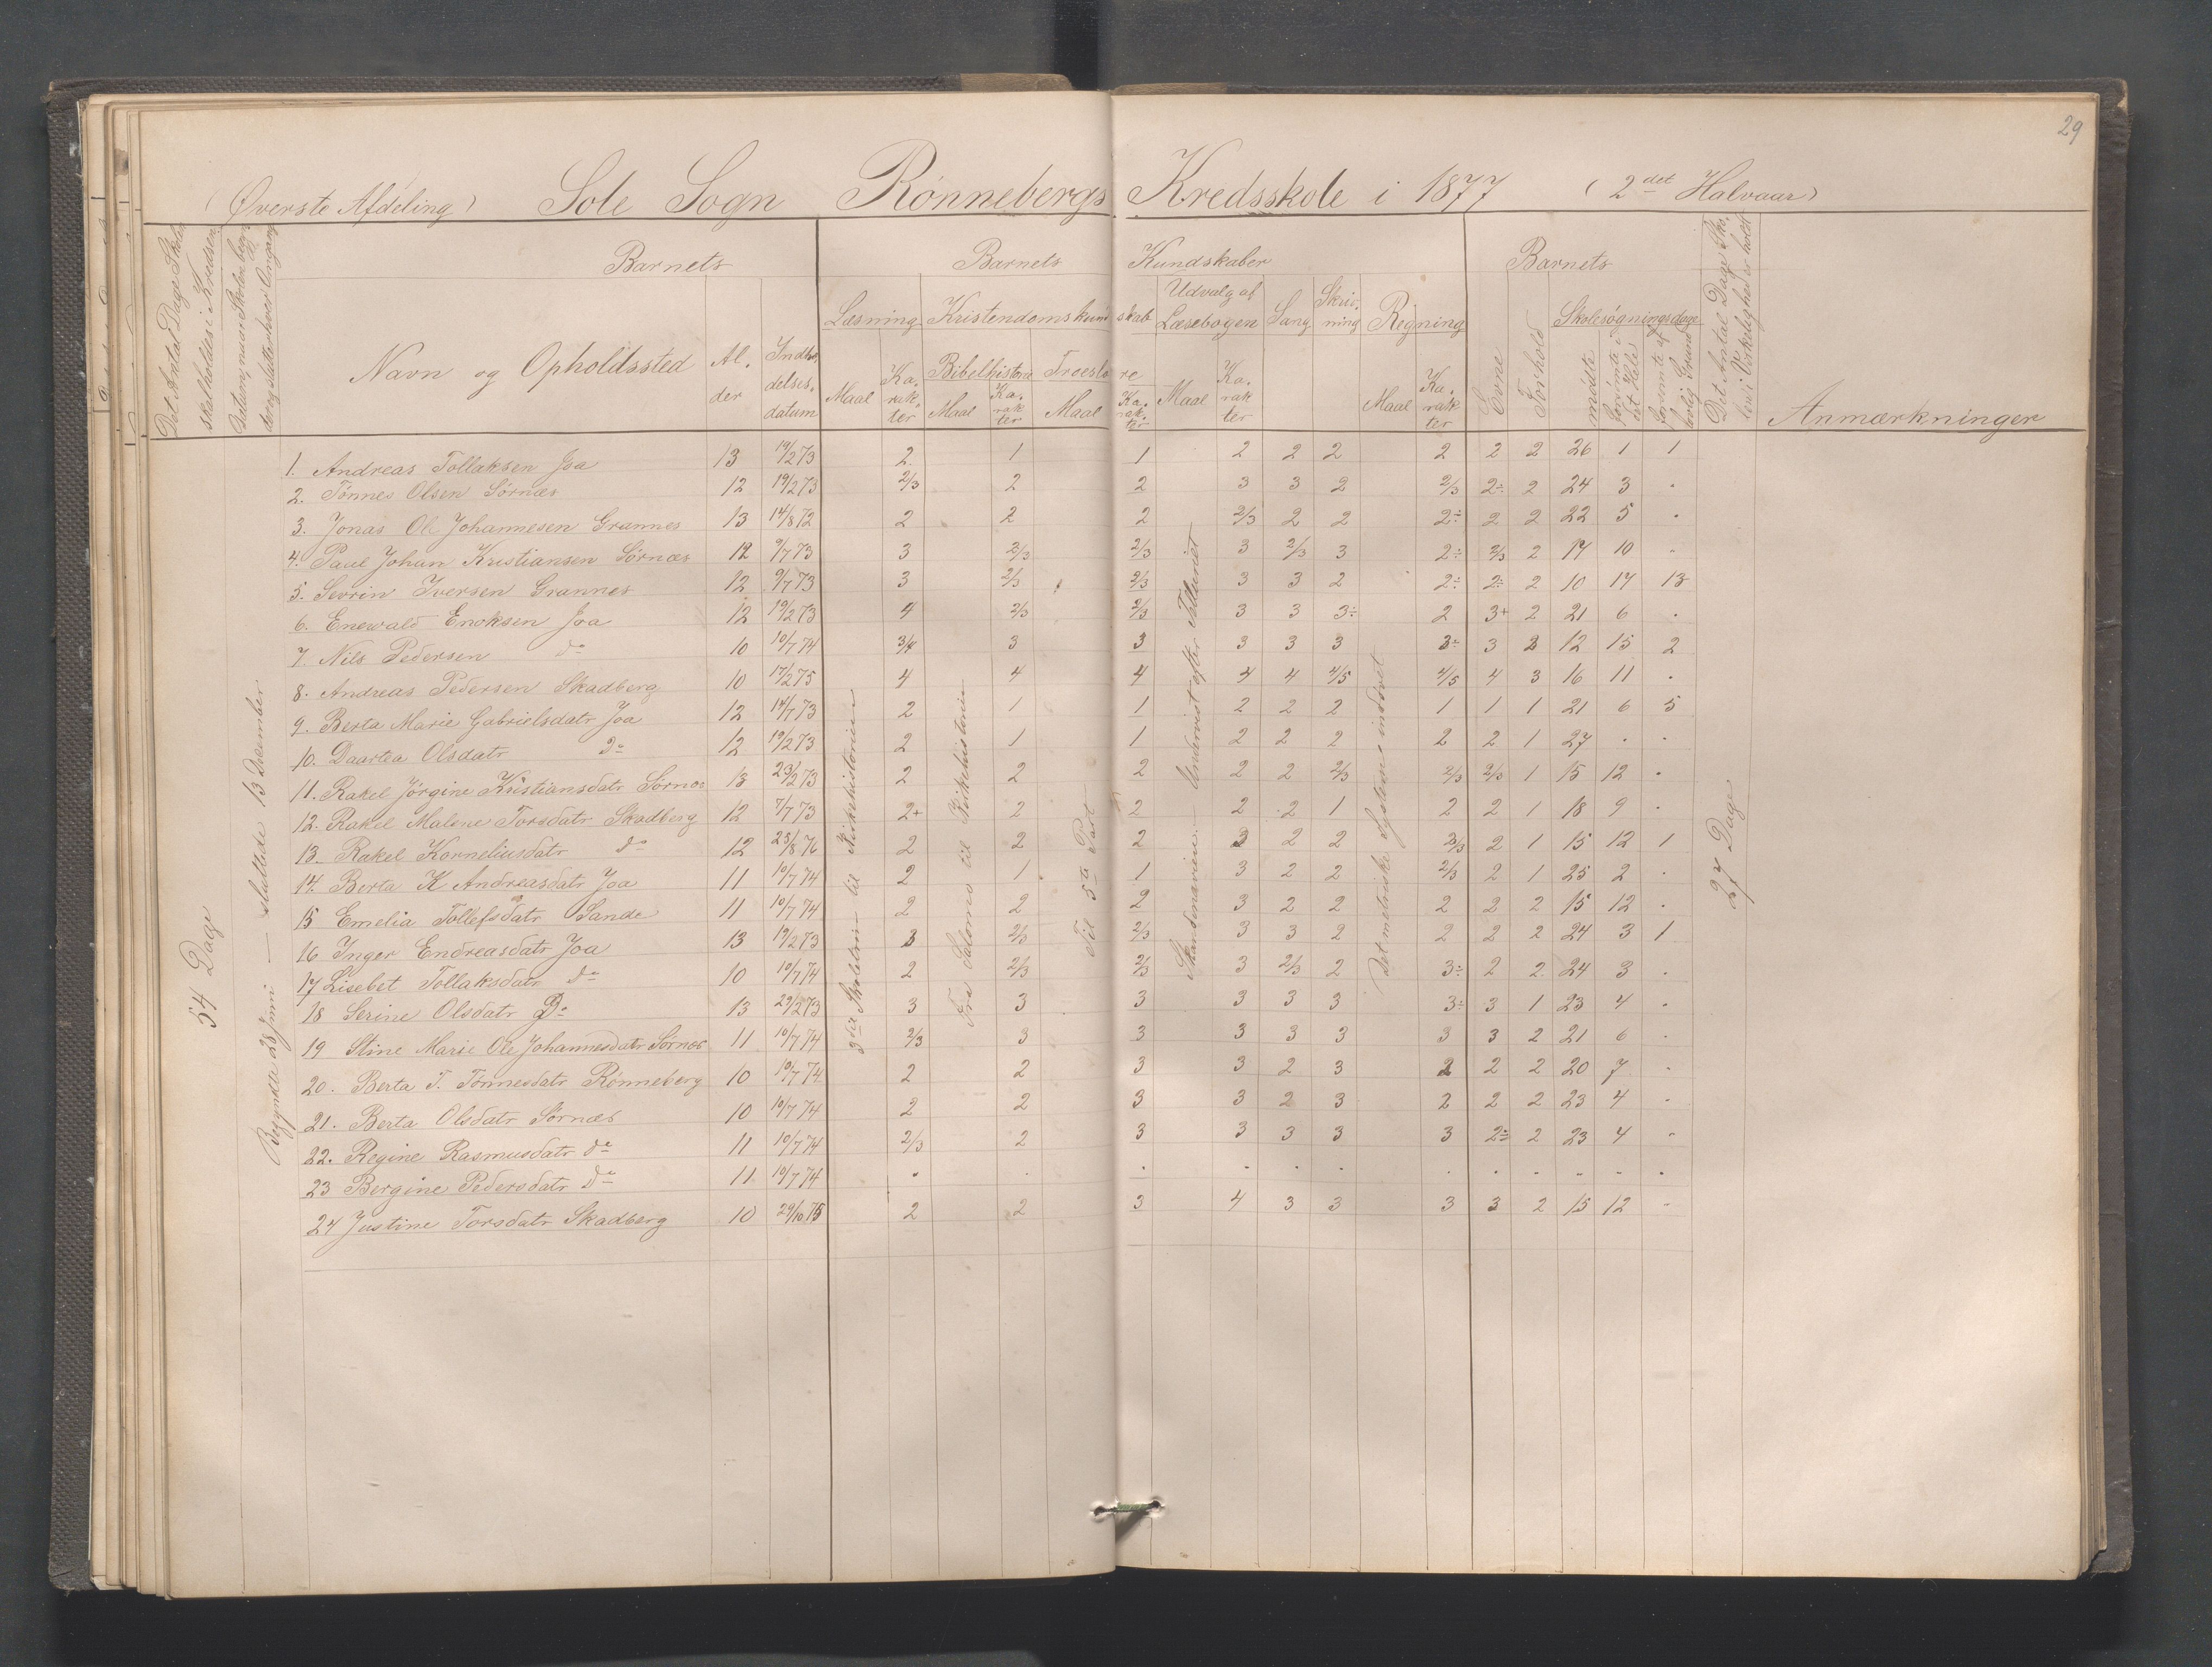 29
(Øverste Afdeling) Sole Sogn Rønnebergs Kredsskole i 1877 (2det Halvaar)
Det Antal Dage Skole skal holdes i Kredsen
Datum, naar Skolen begynder og slutter hver Omgang
Barnets
Navn og Opholdssted
Al-der
Indtrædelses-datum
Barnets Kundskaber
Læsning
Maal
Ka-rak-ter
Kristendomskundskab
Bibelhistorie
Maal
Ka-rak-ter
Troeslære
Maal
Ka-rak-ter
Udvalg af Læsebogen
Maal
Ka-rak-ter
Sang
Skriv-ning
Regning
Maal
Ka-rak-ter
Barnets
Evne
Forhold
Skolesøgningsdage
mødte
forsømte i det Hele
forsømte af lovlig Grund
Det Antal Dage Skolen i Virkelighed er holdt
Anmærkninger
54 Dage
Begyndte 28 Juni — sluttede 13 December
3die Skoletrin til Kirkehistorien
Fra Salomo til Kirkehistorien
Til 5te Part
Skandinavien — Undervist efter Telluriet
Det metriske System indøvet
27 Dage
1. Andreas Tollaksen Joa 13 19/2 73 2. 1 1 2 2 2 2 2 2 26 1 1
2. Tønnes Olsen Sørnæs 12 19/2 73 2/3 2 2 3 3 2 2/3 2÷ 2 24 3 .
3. Jonas Ole Johannesen Grannes 13 14/8 72 2 2 2 2/3 2 2 2÷ 2 2 22 5 .
4. Paul Johan Kristiansen Sørnæs 12 9/7 73 3 2/3 2/3 3 2/3 3 2÷ 2/3 2 17 10 .
5. Sevrin Iversen Grannes 12 9/7 73 3 2/3 2/3 3 3 2 2÷ 2÷ 2 10 17 13
6. Enewald Enoksen Joa 12 19/2 73 4 2/3 2/3 3 3 3÷ 2 3+ 2 21 6 .
7. Nils Pedersen do 10 10/7 74 3/4 3 3 3 3 3 3÷ 3 3 12 15 2
8. Andreas Pedersen Skadberg 10 17/2 75 4 4 4 4 4 4/5 4/5 4 3 16 11 .
9. Berta Marie Gabrielsdatr Joa 12 14/7 73 2 1 1 2 2 2 1 1 1 21 6 5
10. Daartea Olsdatr do 12 19/2 73 2 1 1 2 2 2 2 2 1 27 . .
11. Rakel Jørgine Kristiansdatr Sørnæs 13 23/2 73 2 2 2 2 2 2/3 2/3 2/3 1 15 12 .
12. Rakel Malene Torsdatr Skadberg 12 7/7 73 2+ 2 2 2 2 1 2 2 1 18 9 .
13. Rakel Korneliusdatr do 12 25/8 76 2 2 2 3 2 2 2/3 2 1 15 12 1
14. Berta K Andreasdatr Joa 11 10/7 74 2 1 1 3 2 2 2/3 2 1 25 2 .
15 Emelia Tollefsdatr Sande 11 10/7 74 2 2 2 3 2 2 2 2 2 15 12 .
16 Inger Endreasdatr Joa 13 19/2 73 3 2/3 2/3 3 3 2 2 2 2 24 3 1
17 Lisebet Tollaksdatr do 10 10/7 74 2 2/3 2/3 3 2/3 2 3÷ 2 2 24 3 .
18 Serine Olsdatr Do 13 29/2 73 3 3 3 3 3 3 3÷ 3 1 23 4 .
19 Stine Marie Ole Johannesdatr Sørnæs 11 10/7 74 2/3 3 3 3 3 3 3 3 2 21 6 .
20. Berta T. Tønnesdatr Rønneberg 10 10/7 74 2 2 3 3 2 3 2 2 2 20 7 .
21. Berta Olsdatr Sørnæs 10 10/7 74 2 2 3 3 2 3 2 2 2 23 4 .
22. Regine Rasmusdatr do 11 10/7 74 2/3 2 3 3 3 3 3 2÷ 2 23 4 .
23 Bergine Pedersdatr do 11 10/7 74 . . . . . . . . . . . .
24 Justine Torsdatr Skadberg 10 29/10 75 2 2 3 4 3 3 3 3 2 15 12 .